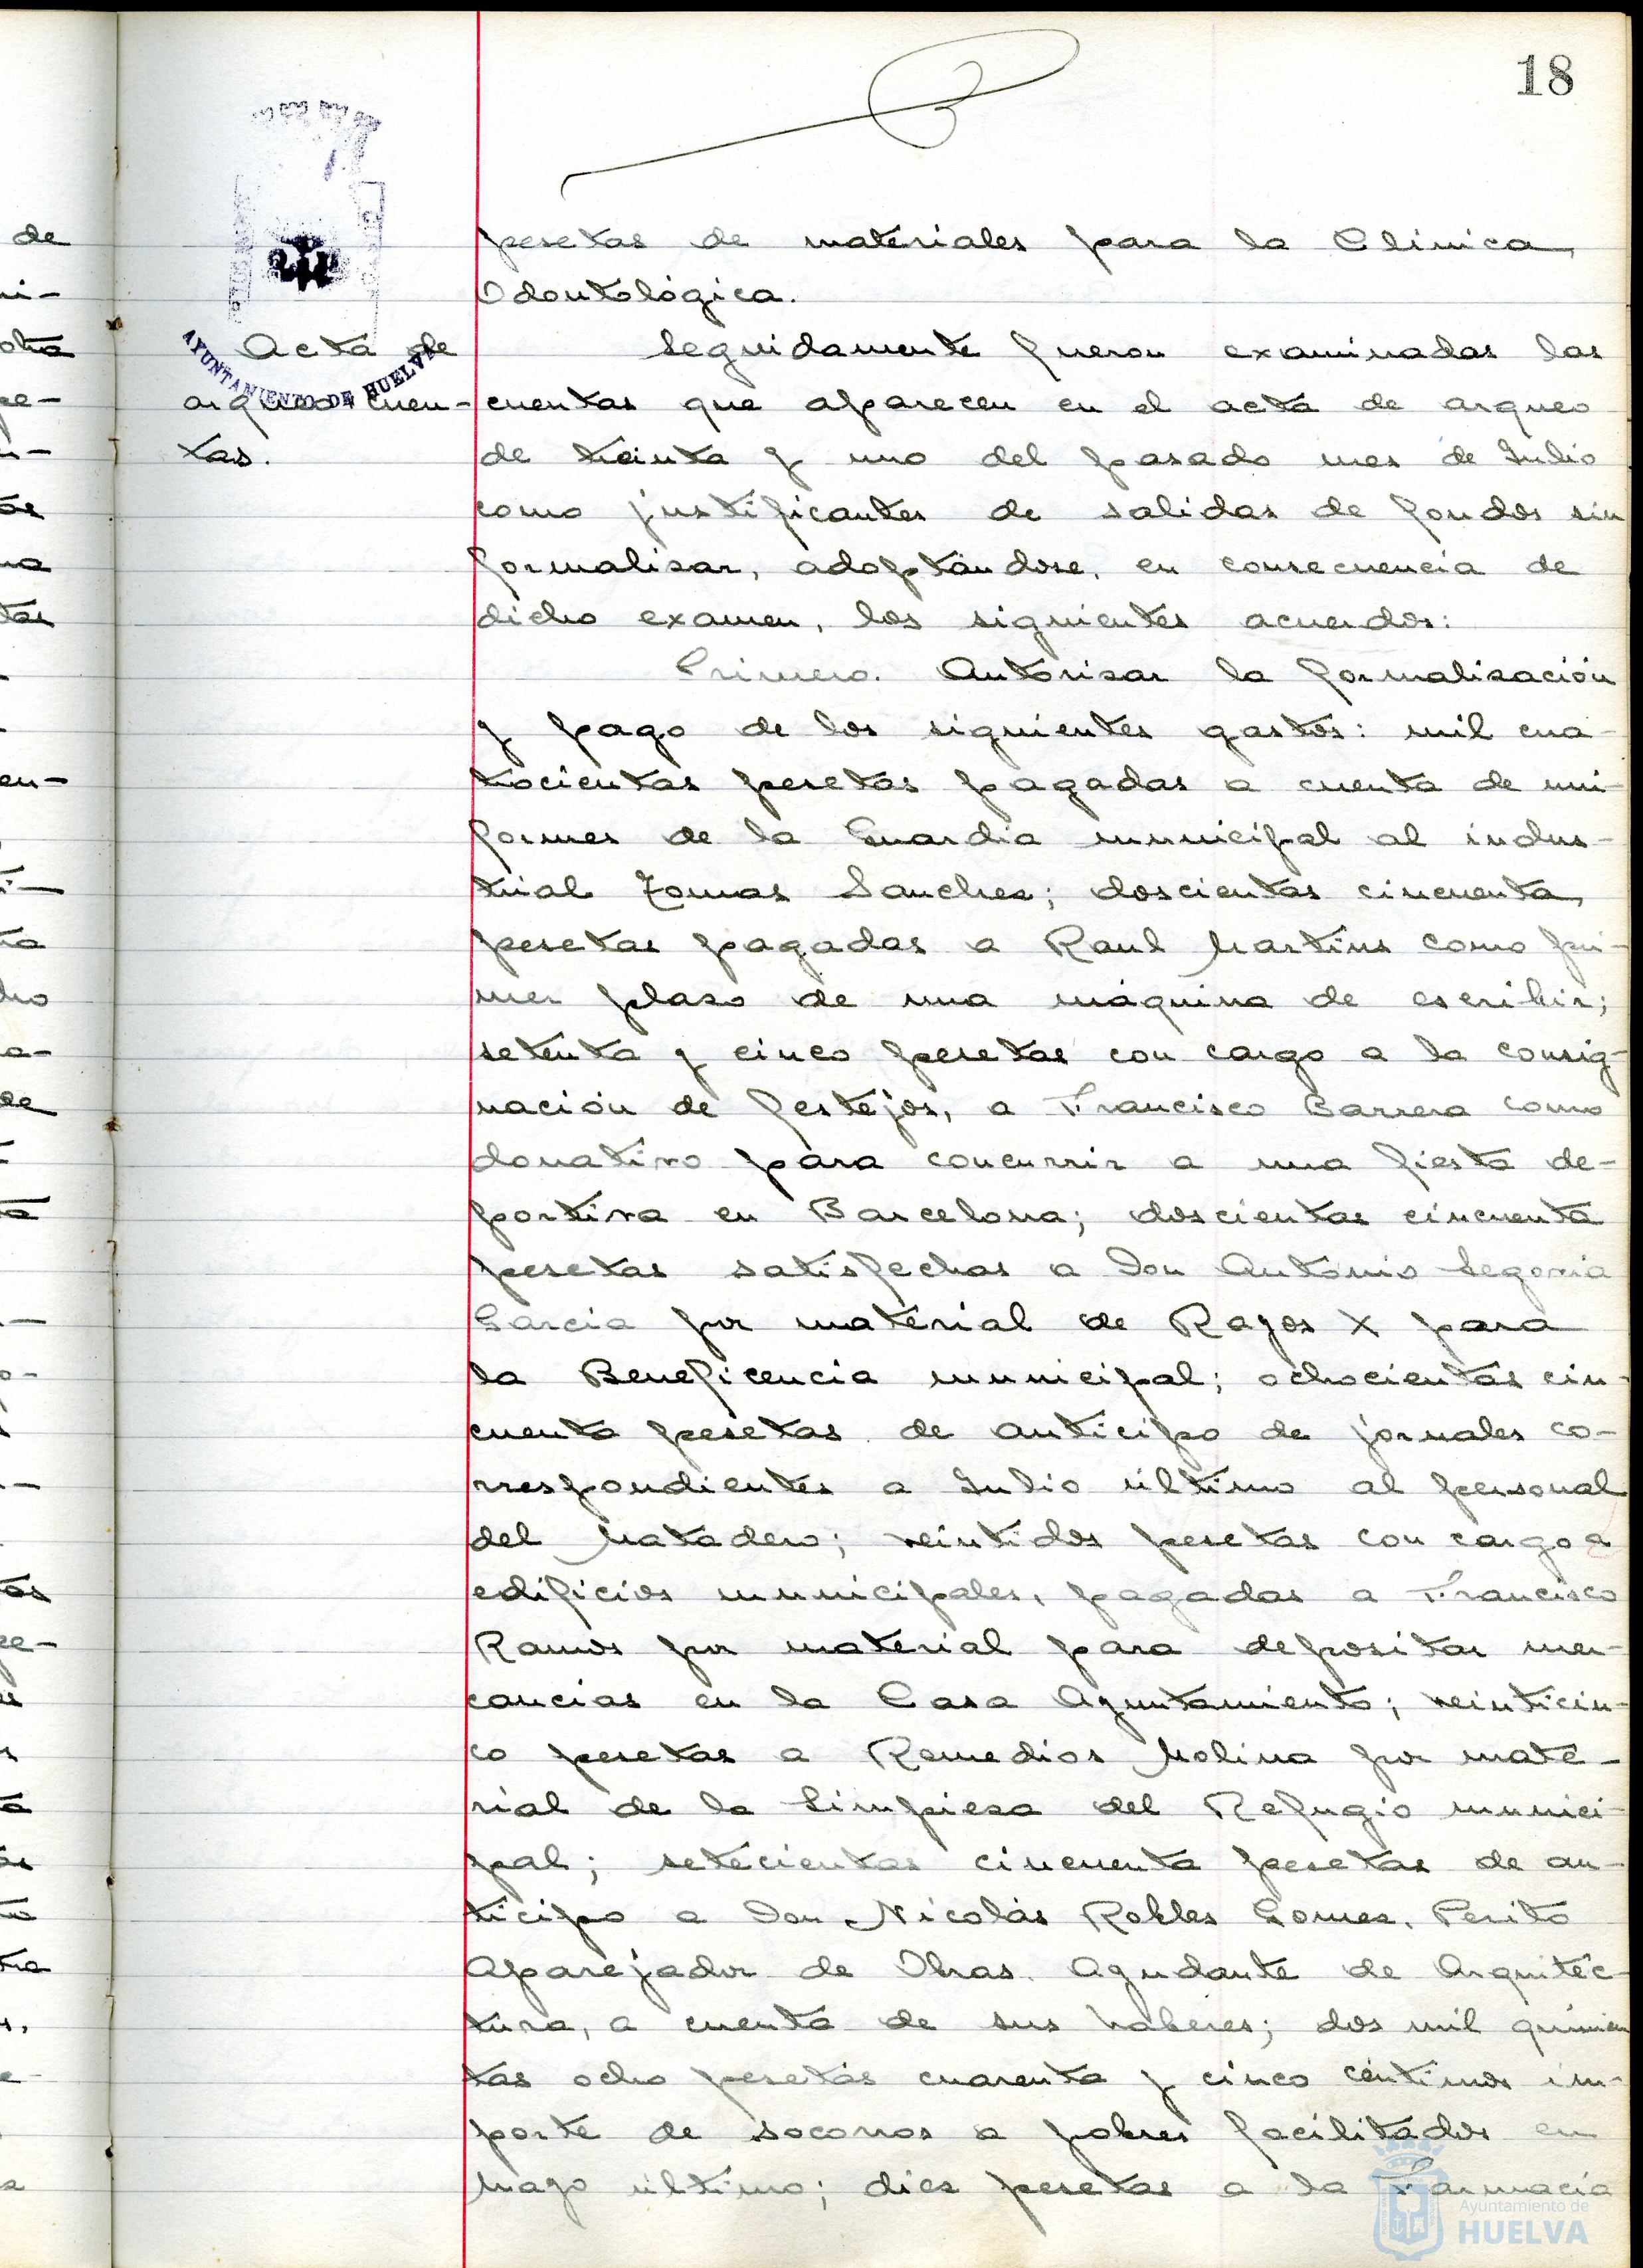 18
pesetas de materiales para la Clínica
Odontológica.
Acta de
arqueo cuen-
tas.
AYUNTAMIENTO DE HUELVA
Seguidamente fueron examinadas las
cuentas que aparecen en el acta de arqueo
de treinta y uno del pasado mes de Julio
como justificantes de salidas de fondos sin
formalizar, adoptándose, en consecuencia de
dicho examen, los siguientes acuerdos:
Primero. Autorizar la formalización
y pago de los siguientes gastos: mil cua-
trocientas pesetas pagadas a cuenta de uni-
formes de la Guardia municipal al indus-
trial Tomas Sanchez; doscientas cincuenta
pesetas pagadas a Raul Martins como pri-
mer plazo de una máquina de escribir;
setenta y cinco pesetas con cargo a la consig-
nación de festejos, a Francisco Barrera como
donativo para concurrir a una fiesta de-
portiva en Barcelona; doscientas cincuenta
pesetas satisfechas a Don Antonio Segovia
Garcia por material de Rayos X para
la Beneficencia municipal; ochocientas cin-
cuenta pesetas de anticipo de jornales co-
rrespondientes a Julio último al personal
del Matadero; veintidos pesetas con cargo a
edificios municipales, pagadas a Francisco
Ramos por material para depositar mer-
cancias en la Casa Ayuntamiento; veinticin-
co pesetas a Remedios Molina por mate-
rial de la limpieza del Refugio munici-
pal; setecientas cincuenta pesetas de an-
ticipo a Don Nicolás Robles Gomez, Perito
Aparejador de Obras. Ayudante de Arquitec-
tura, a cuenta de sus haberes; dos mil quinien
tas ocho pesetas cuarenta y cinco céntimos im-
porte de socorros a pobres facilitados en
Mayo último; diez pesetas a la Farmacia
Ayuntamiento de
HUELVA